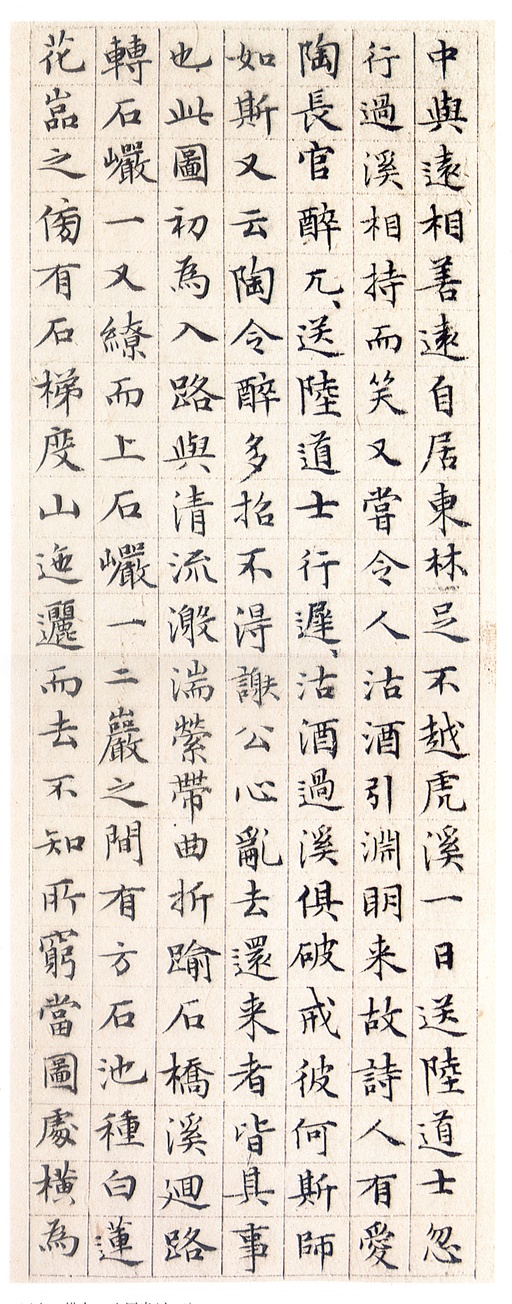 中與遠相善遠自居東林足不越虎溪一日送陸道士忽
行過溪相持而笑又嘗令人沽酒引淵明来故詩人有愛
陶長官醉兀〻送陸道士行遲〻沽酒過溪俱破戒彼何斯師
如斯又云陶令醉多招不得謝公心亂去還来者皆其事
也此圖初為入路與清流激湍縈帶曲折踰石橋溪廻路
轉石巗一又繚而上石巗一二巖之間有方石池種白蓮
花嵓之傍有石梯度山迤邐而去不知所窮當圖處橫為